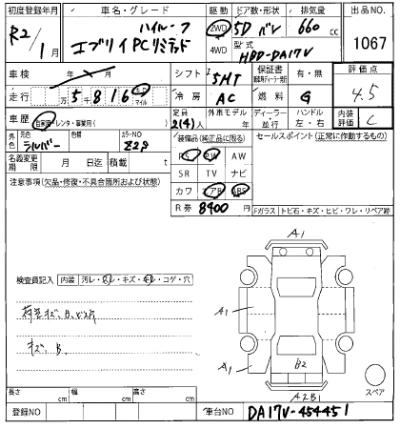 初度登録年月 車名・グレード 駆動 ドア数・形状 排気量 出品NO
R2/1月 ハイルーフ エブリイPCリミテッド 2WD 4WD 5D バン 660cc 1067
型式 HBD-DA17V
車検 年 月 シフト 5MT 保証書 有・無 評価点 4.5
走行 万 5 8 1 6 マイル 冷房 AC 燃料 G
車歴 自家用・レンタ・事業用( ) 定員 2(4)人 外車モデル 年 ディーラー・並行 ハンドル 左・右 内装評価 C
色 元色 シルバー 色替 カラーNO Z2S 装備品(純正品に限る) セールスポイント(正常に作動するもの)
PS PW AW
名義変更期限 月 日迄 積載 t SR TV ナビ
注意事項(欠品・修復・不具合箇所および状態) カワ エアB ABS
R券 8400円
Fガラス トビ石・キズ・ヒビ・ワレ・リペア跡
A1
検査員記入 内装 汚レ・スレ・キズ・イレ・コゲ・穴
A1
キズ、B.
A1
B2
A2B1
スペア
長さ cm 幅 cm 高さ cm
登録NO 車台NO DA17V-454451